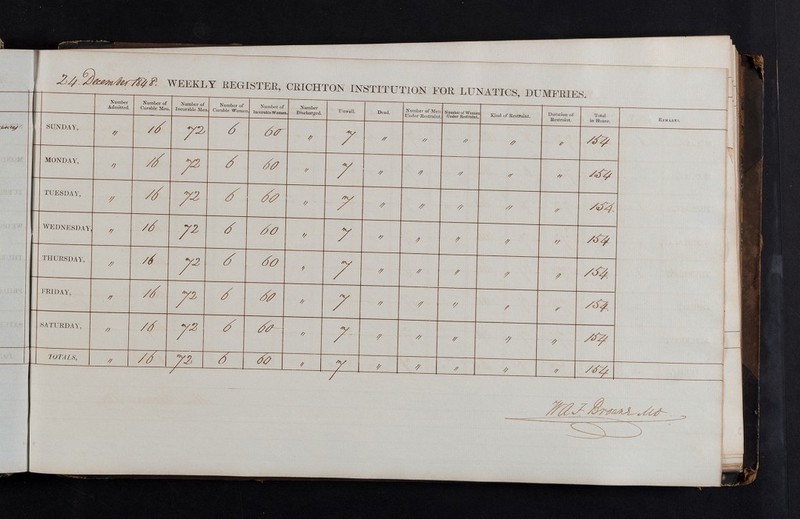 24 December 1848. WEEKLY REGISTER, CRICHTON INSTITUTION FOR LUNATICS, DUMFRIES.
Number Admitted. Number of Curable Men. Number of Incurable Men. Number of Curable Women. Number of Incurable Women. Number Discharged. Unwell. Dead. Number of Men Under Restraint. Number of Women Under Restraint. Kind of Restraint. Duration of Restraint. Total in House. REMARKS.
SUNDAY, " 16 72 6 60 " 7 " " " " " 154
MONDAY, " 16 72 6 60 " 7 " " " " " 154
TUESDAY, " 16 72 6 60 " 7 " " " " " 154.
WEDNESDAY, " 16 72 6 60 " 7 " " " " " 154
THURSDAY, " 16 72 6 60 " 7 " " " " " 154
FRIDAY, " 16 72 6 60 " 7 " " " " " 154.
SATURDAY, " 16 72 6 60 " 7 " " " " " 154
TOTALS, " 16 72 6 60 " 7 " " " " " 154
W.A.F. Browne MD